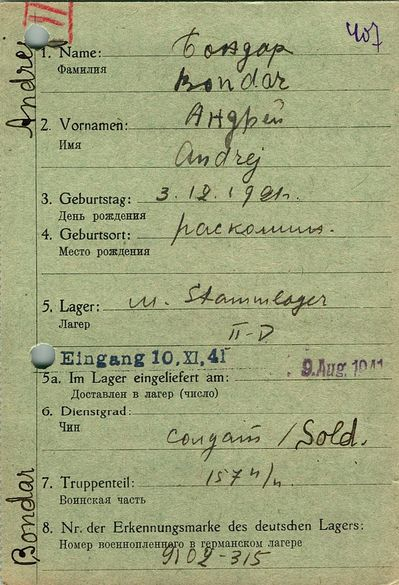 407
1. Name: Бондар
Фамилия
Bondar
2. Vornamen: Андрей
Имя
Andrej
3. Geburtstag: 3.12.1921г.
День рождения
4. Geburtsort:
Место рождения
5. Lager: Stammlager
Лагерь
II-D
Eingang 10. XI. 41
9. Aug. 1941
5a. Im Lager eingeliefert am:
Доставлен в лагерь (число)
6. Dienstgrad:
Чин
солдат / Sold.
7. Truppenteil: 157
Воинская часть
8. Nr. der Erkennungsmarke des deutschen Lagers:
Номер военнопленного в германском лагере
9102-315
Andrej
Bondar